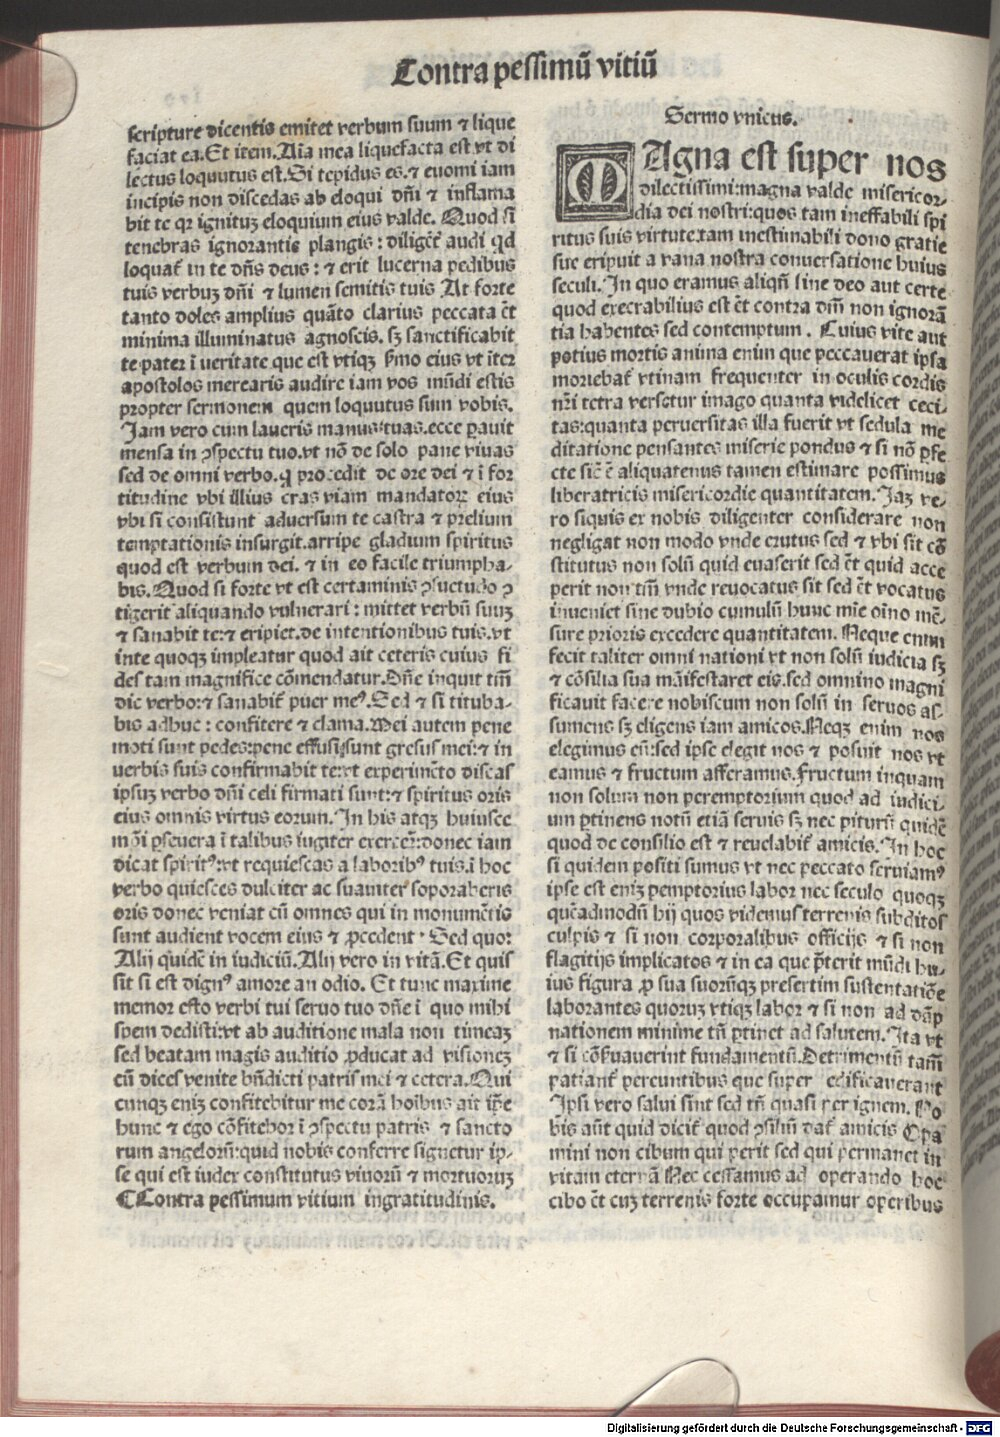 Contra pessimū vitiū
scripture dicentis emitet verbum suum ⁊ lique
faciat ea. Et item. Aia mea liquefacta est vt di
lectus loquutus est. Si tepidus es. ⁊ euomi iam
incipis non discedas ab eloqui dn̄i ⁊ inflama
bit te qr ignituʒ eloquium eius valde. Quod si
tenebras ignorantie plangis : diligēt̄ audi qd
loquat̄ in te dn̄s deus : ⁊ erit lucerna pedibus
tuis verbuʒ dn̄i ⁊ lumen semitis tuis At forte
tanto doles amplius quāto clarius peccata ēt
minima illuminatus agnoscis. sʒ sanctificabit
te pater ī veritate que est vtiqʒ ẜmo eius vt īter
apostolos merearis audire iam vos mūdi estis
propter sermonem quem loquutus sum vobis.
Jam vero cum laueris manus tuas. ecce pauit
mensa in ꝯspectu tuo. vt nō de solo pane viuas
sed de omni verbo. qͥ procedit de ore dei ⁊ ī for
titudine vbi illius cras viam mandatoꝝ eius
vbi si consistunt aduersum te castra ⁊ prelium
temptationis insurgit. arripe gladium spiritus
quod est verbum dei. ⁊ in eo facile triumpha-
bis. Quod si forte vt est certaminis ꝯsuetudo ꝯ
tigerit aliquando vulnerari : mittet verbū suuʒ
⁊ sanabit te: ⁊ eripiet. de intentionibus tuis. vt
inte quoqʒ impleatur quod ait ceteris cuius fi
des tam magnifice cōmendatur. Dn̄e inquit tm̄
dic verbo: ⁊ sanabit̄ puer meꝰ. Sed ⁊ si tituba-
bis adhuc : confitere ⁊ clama. Mei autem pene
moti sunt pedes: pene effusi sunt gresus mei: ⁊ in
verbis suis confirmabit te: vt experimēto discas
ipsuʒ verbo dn̄i celi firmati sunt: ⁊ spiritus oris
eius omnis virtus eorum. In his atqʒ huiusce
mōi ꝑseuera ī talibus iugiter exercēr̄: donec iam
dicat spiritꝰ: vt requiescas a laboribꝰ tuis. ī hoc
verbo quiesces dulciter ac suauiter soporaberis
oris donec veniat cū omnes qui in monumētis
sunt audient vocem eius ⁊ ꝓcedent. Sed quo:
Alij quidē in iudiciū. Alij vero in vitā. Et quis
sit si est dignꝰ amore an odio. Et tunc maxime
memor esto verbi tui seruo tuo dn̄e ī quo mihi
spem dedisti: vt ab auditione mala non timeaʒ
sed beatam magis auditio ꝓducat ad visioneʒ
cū dices venite bn̄dicti patris mei ⁊ cetera. Qui
cunqʒ eniʒ confitebitur me corā hoībus ait ip̄e
hunc ⁊ ego cōfitebor ī ꝯspectu patris ⁊ sancto
rum angelorū: quid nobis conferre signetur ip-
se qui est iudex constitutus viuorū ⁊ mortuoruʒ
¶Contra pessimum vitium ingratitudinis.
Sermo vnicus.
MAgna est super nos
dilectissimi: magna valde misericor-
dia dei nostri: quos tam ineffabili spi
ritus suis virtute. tam inestimabili dono gratie
sue eripuit a vana nostra conuersatione huius
seculi. In quo eramus aliqn̄ sine deo aut certe
quod execrabilius est ēt contra dm̄ non ignorā
tia habentes sed contemptum. Cuius vite aut
potius mortis anima enim que peccauerat ipsa
moriebat̄ vtinam frequenter in oculis cordis
nr̄i tetra versetur imago quanta videlicet ceci-
tas: quanta peruersitas illa fuerit vt sedula me
ditatione pensantes miserie pondus ⁊ si nō ꝑfe
cte sic̄ ē aliquatenus tamen estimare possimus
liberatricis misericordie quantitatem. Jaʒ ve-
ro siquis ex nobis diligenter considerare non
negligat non modo vnde erutus sed ⁊ vbi sit cō
stitutus non solū quid euaserit sed ēt quid acce
perit non tm̄ vnde reuocatus sit sed ēt vocatus
inueniet sine dubio cumulū hunc mīe oīno mē-
sure prioris excedere quantitatem. Neque enim
fecit taliter omni nationi vt non solū iudicia sʒ
⁊ cōsilia sua māifestaret eis. sed omnino magni
ficauit facere nobiscum non solū in seruos as-
sumens sʒ eligens iam amicos. Neqʒ enim nos
elegimus eū: sed ipse elegit nos ⁊ posuit nos vt
eamus ⁊ fructum afferamus. Fructum inquam
non solum non peremptorium quod ad iudici-
um ꝑtinens notū etiā seruis sʒ nec piturū quidē
quod de consilio est ⁊ reuelabit̄ amicis. In hoc
si quidem positi sumus vt nec peccato seruiamꝰ
ipse est eniʒ pemptorius labor nec seculo quoqʒ
quēadmodū hij quos videmus terrenis subditos
culpis ⁊ si non corporalibus officijs ⁊ si non
flagitijs implicatos ⁊ in ea que p̄terit mūdi hu-
ius figura ꝓ sua suorūqʒ presertim sustentatiōe
laborantes quoruʒ vtiqʒ labor ⁊ si non ad dāp
nationem minime tn̄ ꝑtinet ad salutem. Ita vt
⁊ si cōẜuauerint fundamentū. Detrimentū tam̄
patiant̄ pereuntibus que super edificauerant
Ipsi vero salui sint sed tn̄ quasi per ignem. Vo
bis aūt quid dicit̄ quod ꝯsiliū dat̄ amicis Opa
mini non cibum qui perit sed qui permanet in
vitam eternā Nec cessamus ad operando hoc
cibo ēt cuʒ terrenis forte occupamur operibus
Digitalisierung gefördert durch die Deutsche Forschungsgemeinschaft - DFG